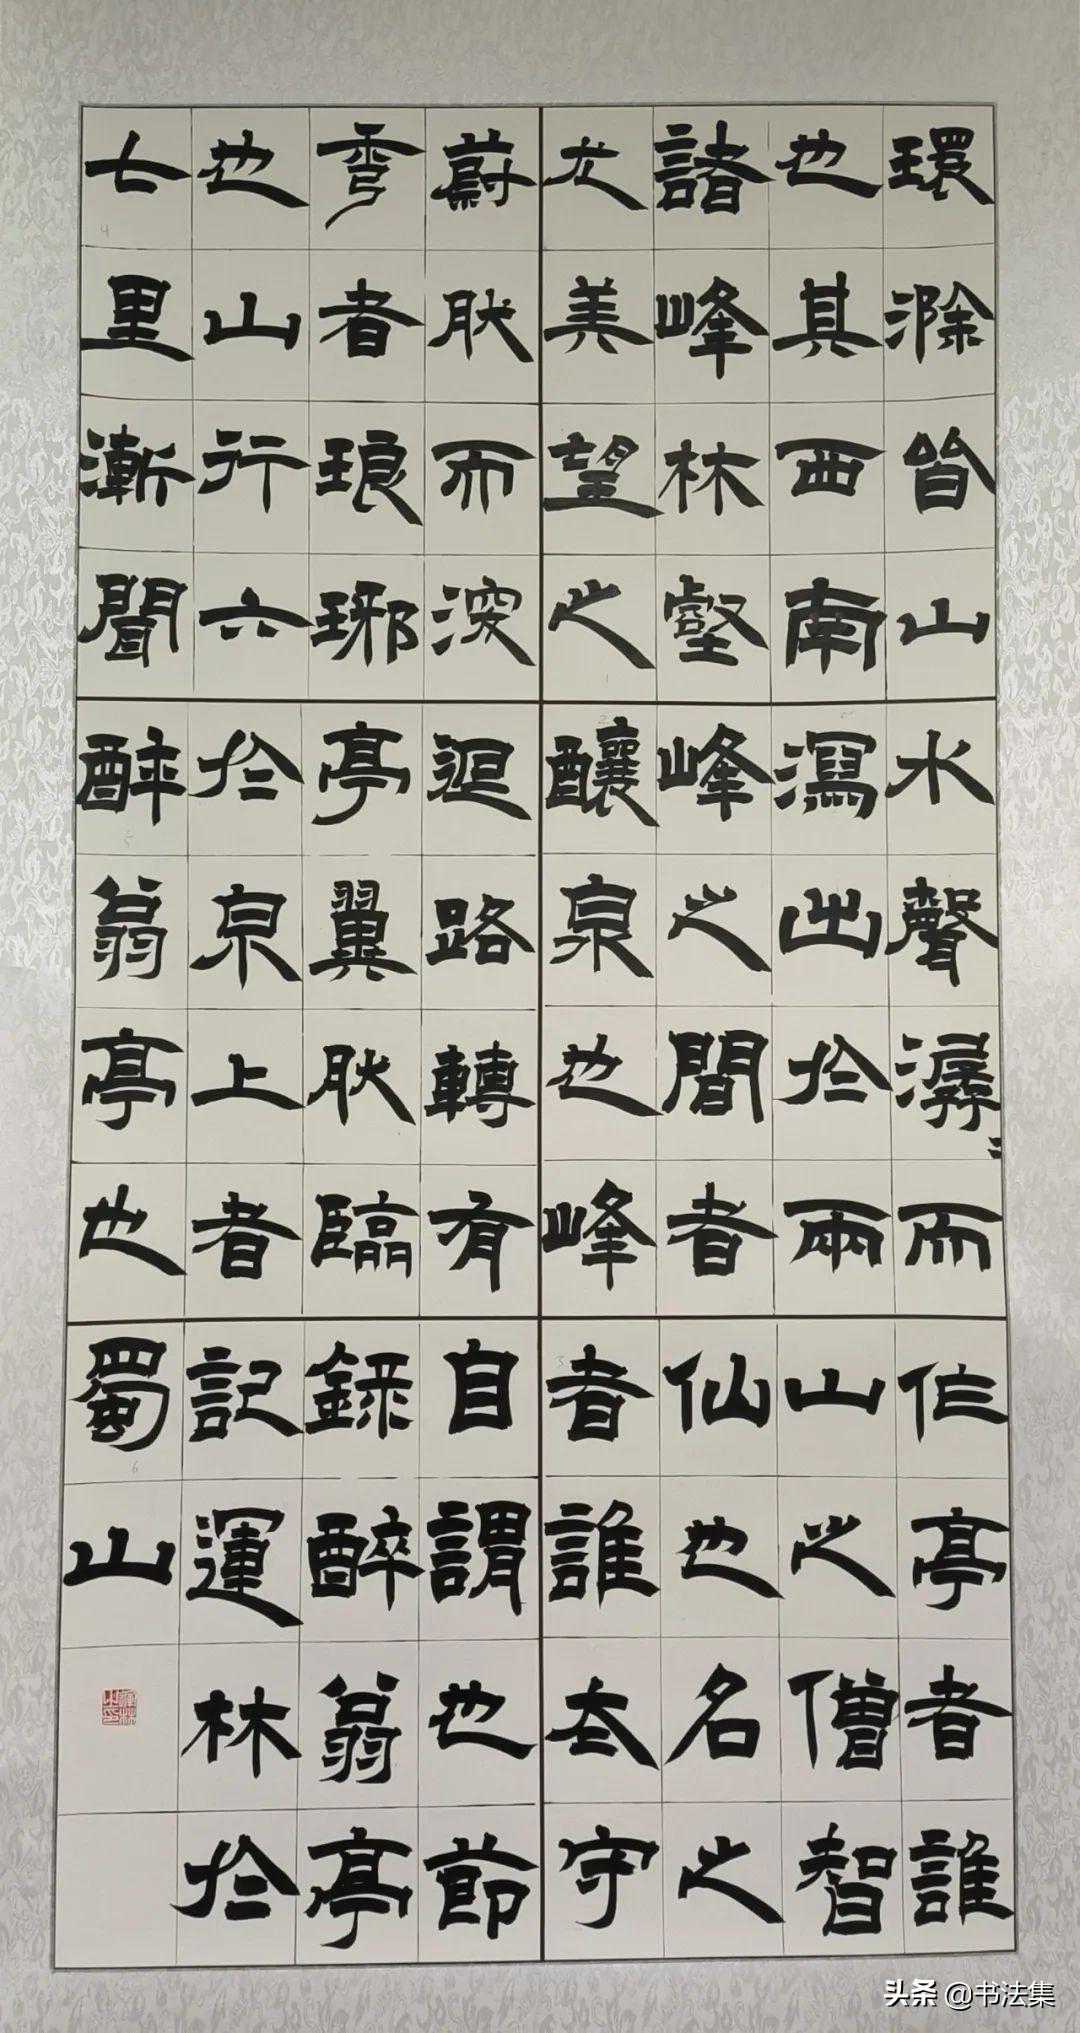 環滁皆山
也其西南
諸峰林壑
尤美望之
蔚然而深
秀者琅琊
也山行六
七里漸聞
水聲潺〻而
瀉出於兩
峰之間者
釀泉也峰
迴路轉有
亭翼然臨
於泉上者
醉翁亭也
作亭者誰
山之僧智
仙也名之
者誰太守
自謂也節
錄醉翁亭
記運林於
蜀山
头条 @书法集